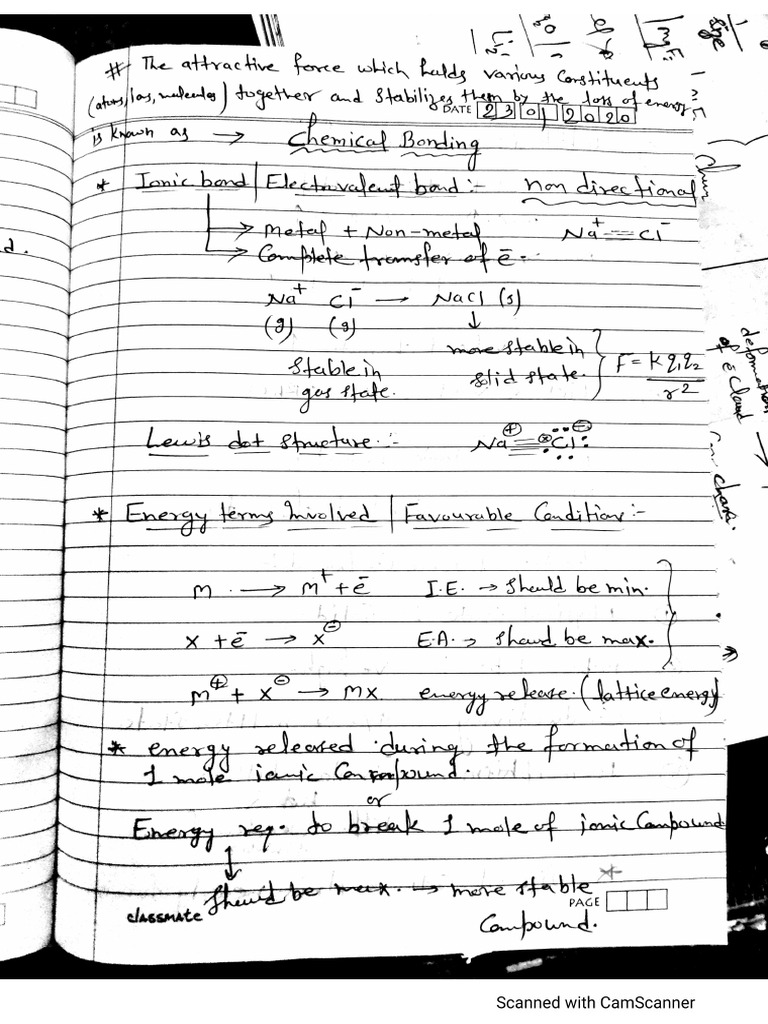 # The attractive force which holds various Constituents
(atoms, Ions, molecules) together and stabilizes them by the loss of energy
DATE 23 01 2020
is known as → Chemical Bonding
* Ionic bond | Electrovalent bond :- non directional
→ Metal + Non-metal Na⁺ Cl⁻
→ Complete transfer of ē.
Na⁺ Cl⁻ → NaCl (s)
(g) (g) ↓
Stable in gas state. more stable in solid state. } F = K q₁q₂ / r²
Lewis dot structure :- Na⊕ Cl⊖
* Energy terms Involved | Favourable Condition :-
M → M⁺ + ē I.E. → Should be min.
X + ē → X⊖ E.A. → Should be max.
M⊕ + X⊖ → MX energy release. (lattice energy)
* energy released during the formation of
1 mole ionic Compound.
or
Energy req. to break 1 mole of ionic Compound
↓
Should be max. → more stable
classmate PAGE
Compound.
deformation
of ē cloud
Scanned with CamScanner